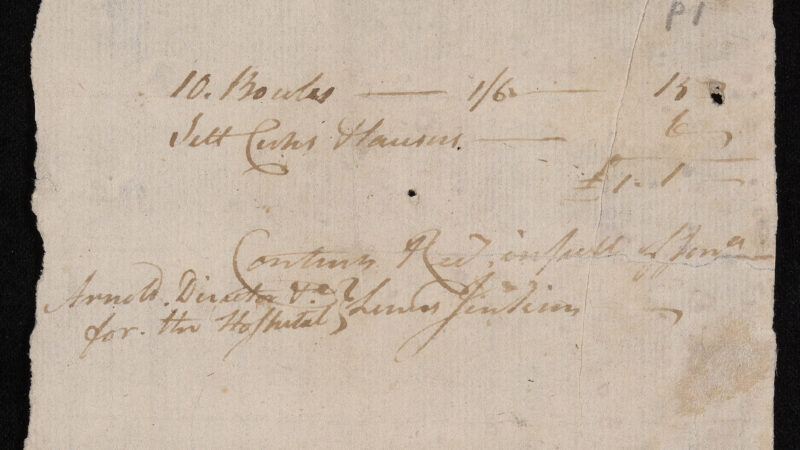 P1
10. Bowles — 1/6 — 15
Sett — 6
£1. 1 —
Contents Recd. in full of Jona
Arnold. Director &ca
for. the Hospital Jenkins